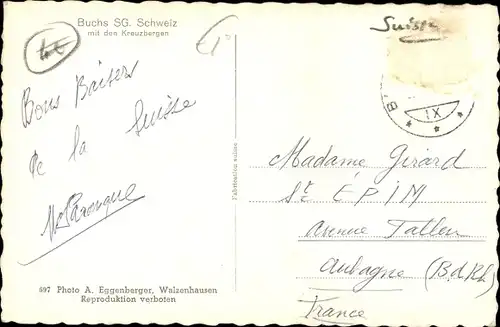 Buchs SG. Schweiz
mit den Kreuzbergen
Suisse
Bons Baisers
de la Suisse
Fabrication suisse
IX
Madame Girard
St EPIN
Avenue
Aubagne (B.d.Rh)
France
697 Photo A. Eggenberger, Walzenhausen
Reproduktion verboten